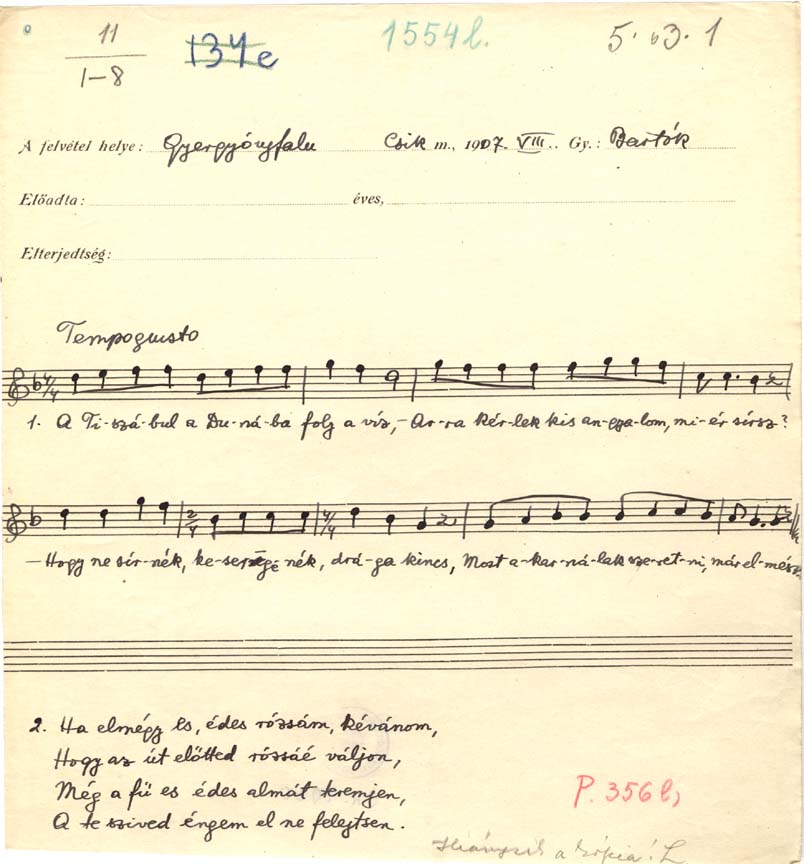 11 134e 1554l. 5. b3. 1
1–8
A felvétel helye: Gyergyóujfalu Csik m., 1907. VIII. Gy.: Bartók
Előadta: éves,
Elterjedtség:
Tempo giusto
4/4
1. A Ti-szá-bul a Du-ná-ba folj a víz, – Ar-ra kér-lek kis an-gya-lom, mi-ér sírsz?
2/4 4/4
– Hogy ne sír-nék, ke-sereg-nék, drá-ga kincs, Most a-kar-ná-lak sze-ret-ni, már el-mész
2. Ha elmégy es, édes rózsám, kévánom,
Hogy az út előtted rózsáé váljon,
Még a fű es édes almát teremjen,
A te szived éngem el ne felejtsen.
P. 356l,
Hiányzik a kópia! L